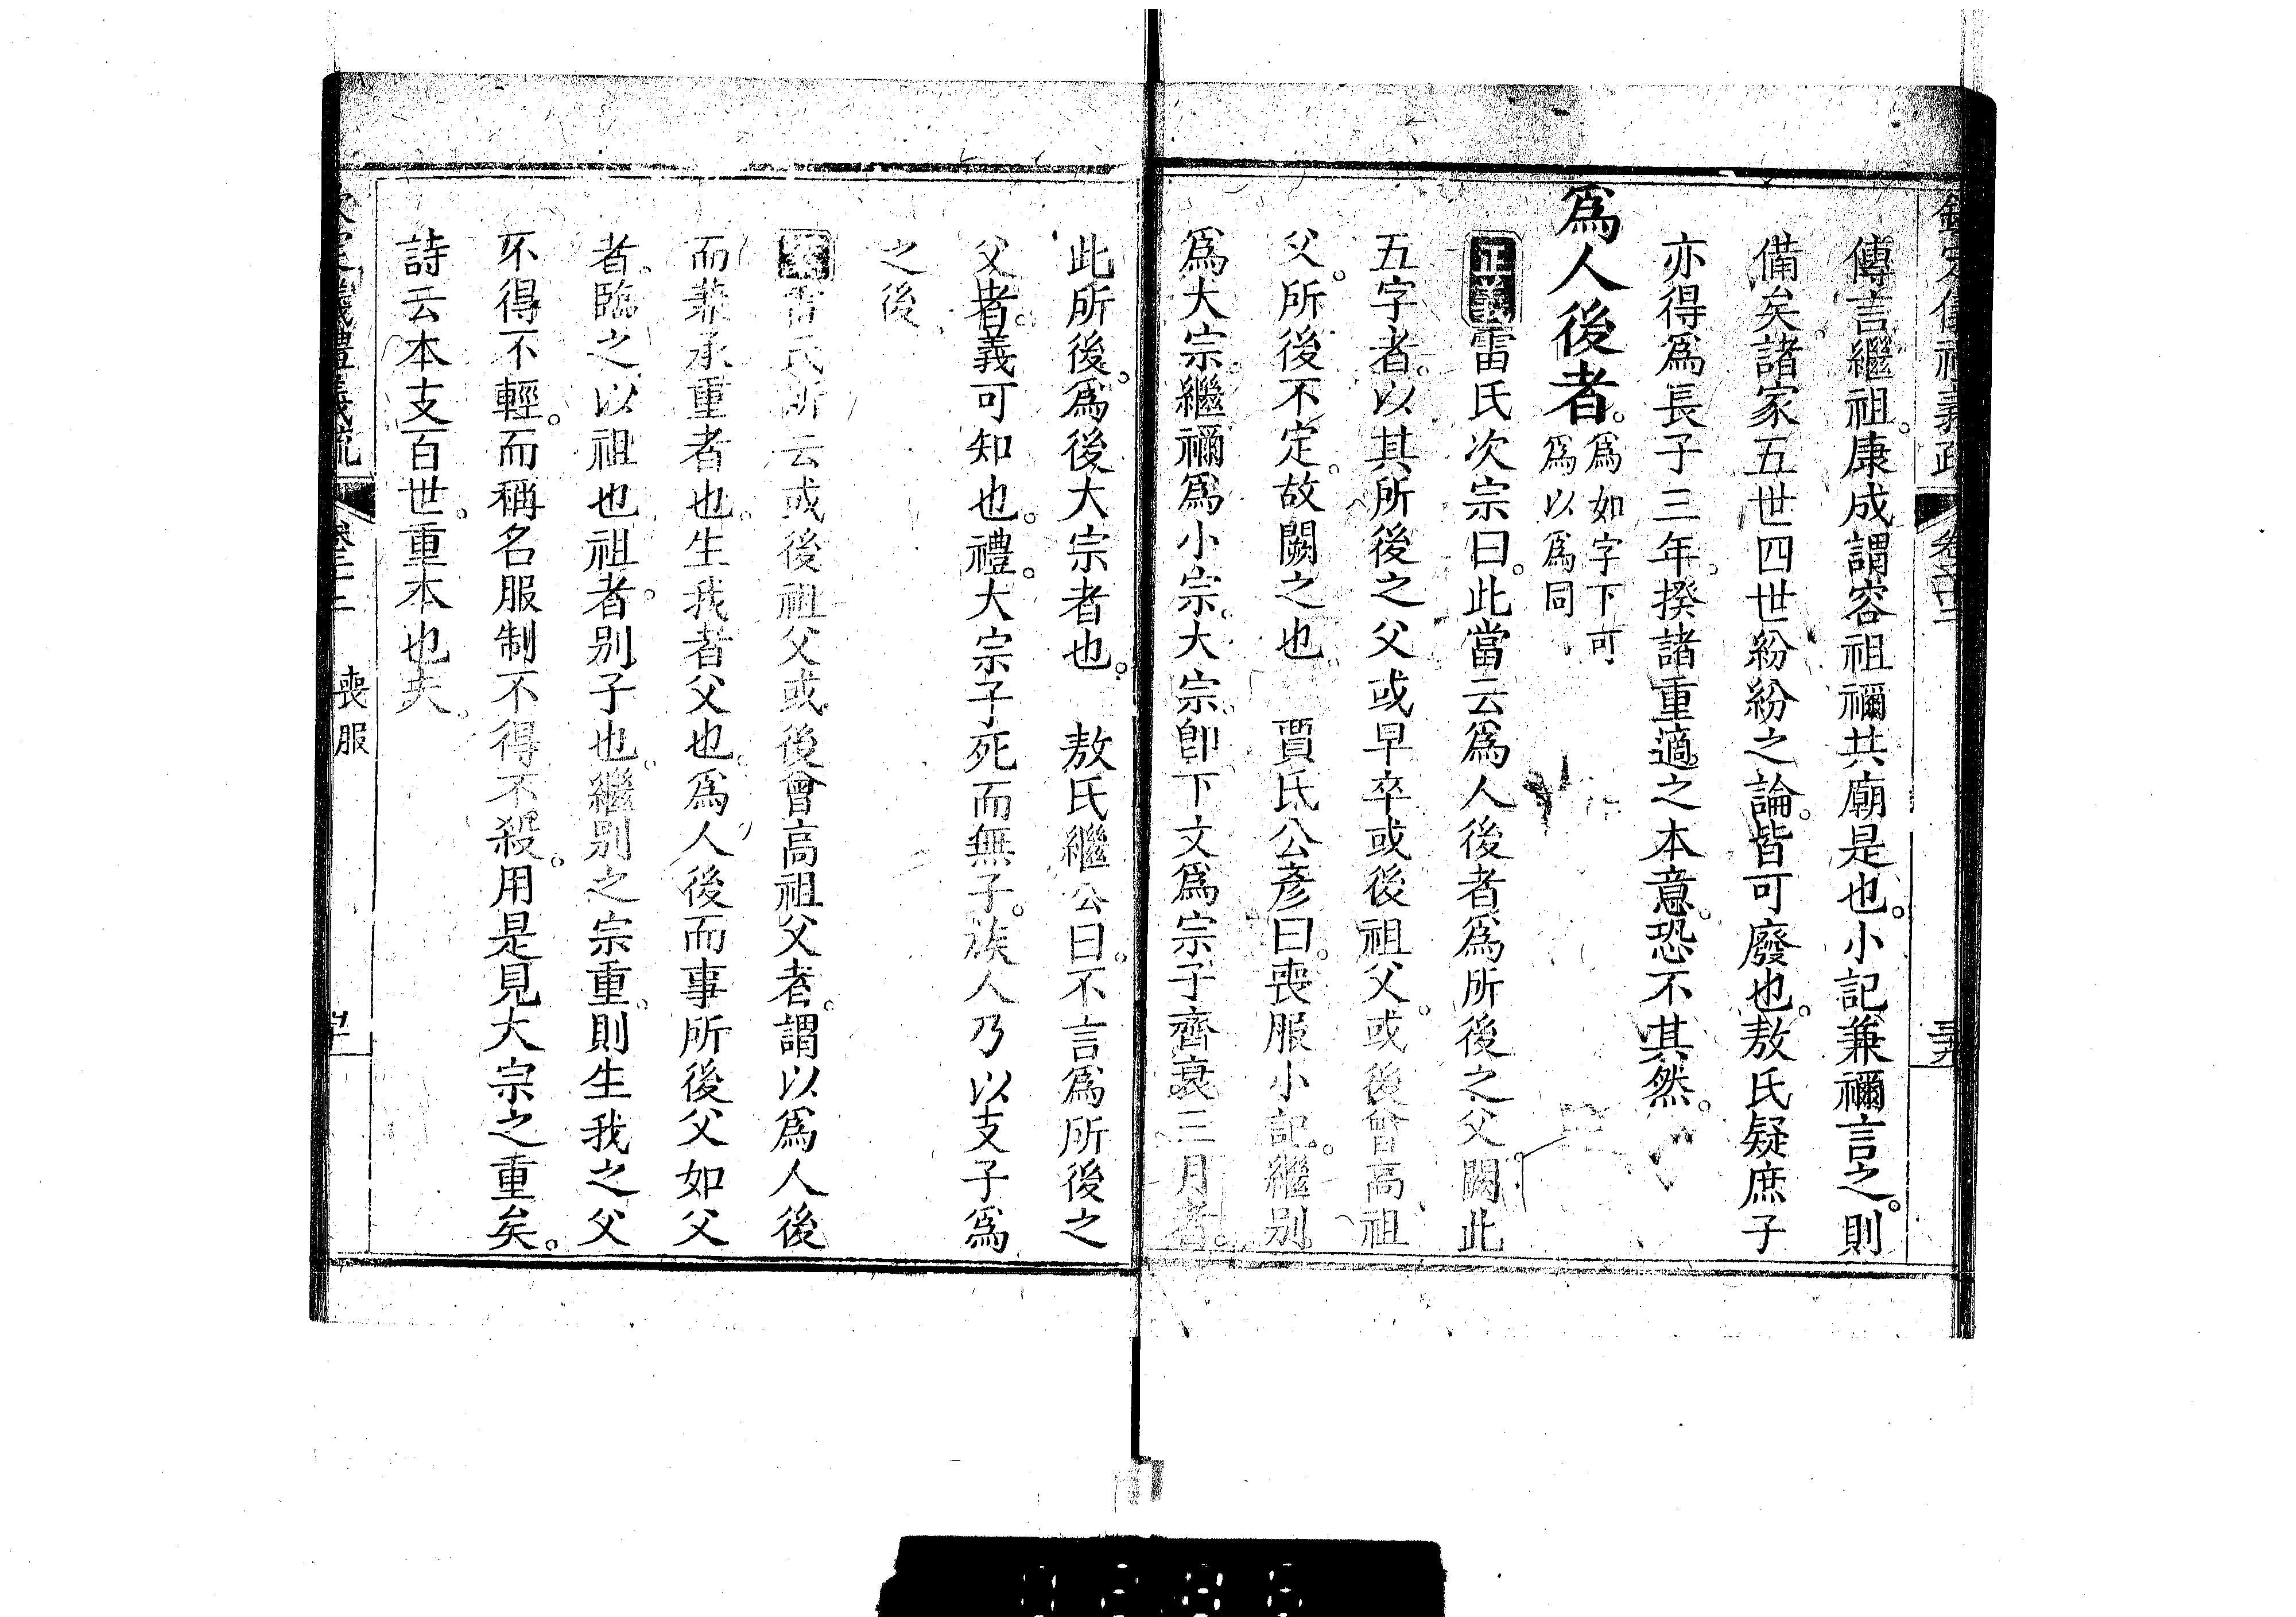 欽定儀禮義疏 卷二十二 三十九
傳言繼祖。康成謂容祖禰共廟是也。小記兼禰言之。則
備矣。諸家五世四世紛紛之論。皆可廢也。敖氏疑庶子
亦得爲長子三年。揆諸重適之本意。恐不其然。
爲人後者。爲如字下可
爲以爲同
正義雷氏次宗曰。此當云爲人後者爲所後之父。闕此
五字者。以其所後之父或早卒或後祖父。或後曾高祖
父。所後不定。故闕之也。 賈氏公彥曰。喪服小記。繼别
爲大宗。繼禰爲小宗。大宗。卽下文爲宗子齊衰三月者。
此所後。爲後大宗者也。 敖氏繼公曰。不言爲所後之
父者。義可知也。禮。大宗子死而無子。族人乃以支子爲
之後。
案雷氏所云或後祖父或後曾高祖父者。謂以爲人後
而兼承重者也。生我者父也。爲人後而事所後父如父
者。臨之以祖也祖者。别子也。繼别之宗重。則生我之父
不得不輕。而稱名服制不得不殺。用是見大宗之重矣。
詩云本支百世。重本也夫。
欽定儀禮義疏 卷二十二 喪服